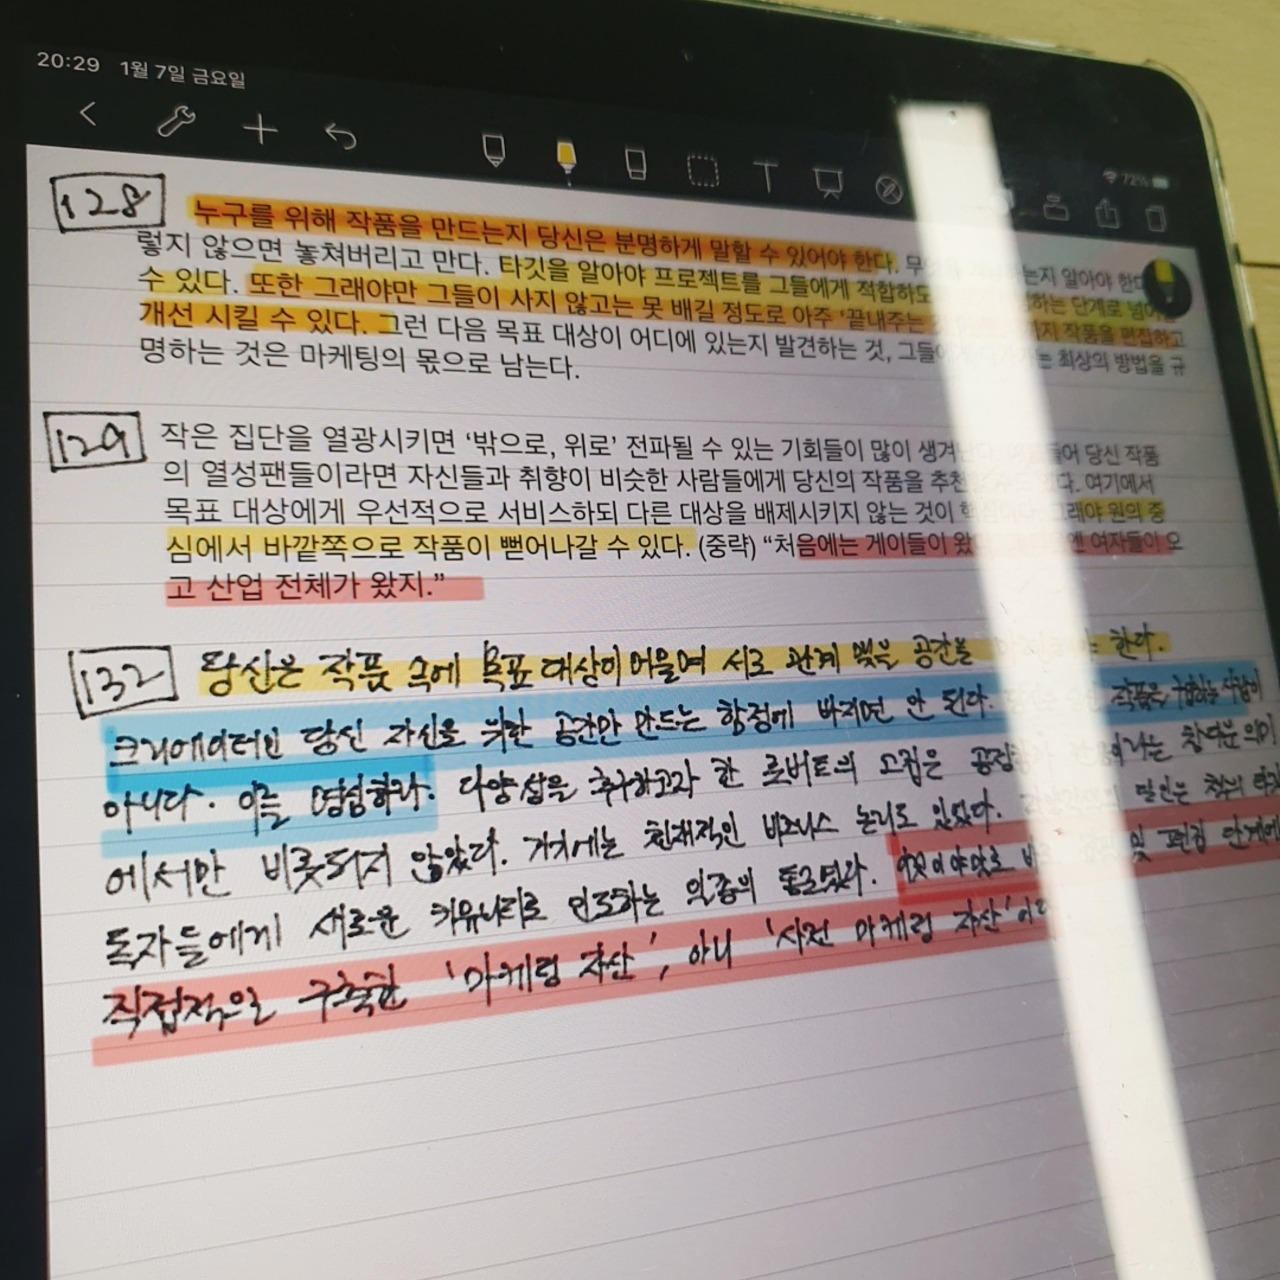 20:29 1월 7일 금요일
72%
128 누구를 위해 작품을 만드는지 당신은 분명하게 말할 수 있어야 한다. 알아야 한다
렇지 않으면 놓쳐버리고 만다. 타깃을 알아야 프로젝트를 그들에게 적합하도 하는 단계로
수 있다. 또한 그래야만 그들이 사지 않고는 못 배길 정도로 아주 '끝내주는 작품을 편집하고
개선 시킬 수 있다. 그런 다음 목표 대상이 어디에 있는지 발견하는 것, 최상의 방법을 규
명하는 것은 마케팅의 몫으로 남는다.
129 작은 집단을 열광시키면 '밖으로, 위로' 전파될 수 있는 기회들이 많이 당신 작품
의 열성팬들이라면 자신들과 취향이 비슷한 사람들에게 당신의 작품을 여기에서
목표 대상에게 우선적으로 서비스하되 다른 대상을 배제시키지 않는 것이 그래야 원의 중
심에서 바깥쪽으로 작품이 뻗어나갈 수 있다. (중략) "처음에는 게이들이 여자들이 오
고 산업 전체가 왔지."
132 당신은 작품 속에 목표 대상이 어울여 서로 관계 맺을 공간을 한다.
크리에이터인 당신 자신을 위한 공간만 만드는 함정에 빠지면 안 된다. 작품을
아니다. 이를 명심하라. 다양성을 추구하고자 한 로버트의 고집은
에서만 비롯되지 않았다. 거기에는 천재적인 비즈니스 논리도 있었다.
독자들에게 새로운 커뮤니티로 인도하는 일종의 통로였다. 이것이야말로 및 편집 단계에
직접적으로 구축한 '마케팅 자산', 아니 '사전 마케팅 자산'